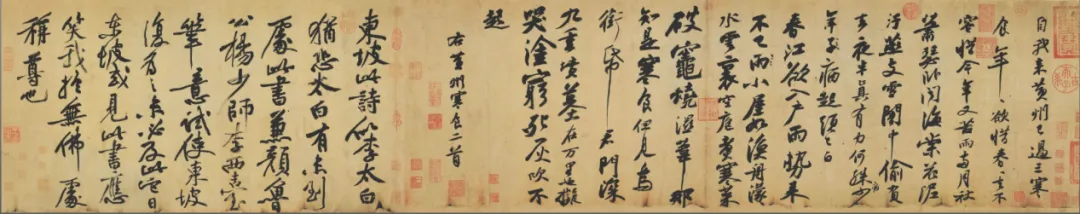 自我來黃州已過三寒
食年年欲惜春春去不
容惜今年又苦雨兩月秋
蕭瑟卧聞海棠花泥
汙燕支雪闇中偷負
去夜半真有力何殊少
年子病起頭已白
春江欲入户雨勢來
不已雨小屋如漁舟濛濛
水雲裏空庖煮寒菜
破竈燒濕葦那
知是寒食但見烏
銜帋君門深
九重墳墓在万里也擬
哭塗窮死灰吹不
起
右黃州寒食二首
東坡此詩似李太白
猶恐太白有未到
處此書兼顏魯
公楊少師李西臺
筆意試使東坡
復為之未必及此它日
東坡或見此書應
笑我於無佛處
稱尊也